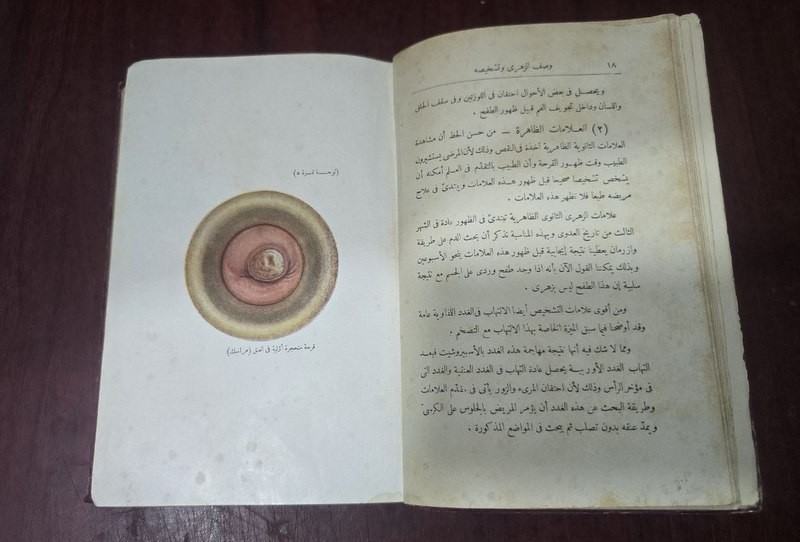 وصف الزهرى وتشخيصه
١٨
ويحصل فى بعض الأحوال احتقان فى اللوزتين وفى سقف الحلق
واللسان وداخل تجويف الفم قبيل ظهور الطفح .
(٢) العلامات الظاهرة — من حسن الحظ أن مشاهدة
العلامات الثانوية الظاهرية آخذة فى النقص وذلك لأن المرضى يستشيرون
الطبيب وقت ظهور القرحة وأن الطبيب بالتقدم فى العلم أمكنه أن
يشخص تشخيصا صحيحا قبل ظهور هذه العلامات ويبتدئ فى علاج
مريضه طبعا فلا تظهر هذه العلامات .
علامات الزهرى الثانوى الظاهرية تبتدئ فى الظهور عادة فى الشهر
الثالث من تاريخ العدوى وبهذه المناسبة نذكر أن بحث الدم على طريقة
وازرمان يعطينا نتيجة إيجابية قبل ظهور هذه العلامات بنحو الأسبوعين
وبذلك يمكننا القول الآن بأنه اذا وجد طفح وردى على الجسم مع نتيجة
سلبية إن هذا الطفح ليس بزهرى .
ومن أقوى علامات التشخيص أيضا الالتهاب فى الغدد اللنفاوية عامة
وقد أوضحنا فيما سبق الميزة الخاصة بهذا الالتهاب مع التضخم .
ومما لا شك فيه أنها نتيجة مهاجمة هذه الغدد بالأسبيروشيت فبعد
التهاب الغدد الأوربية يحصل عادة التهاب فى الغدد العنقية والغدد التى
فى مؤخر الرأس وذلك لأن احتقان المرىء والزور يأتى فى مقدّم العلامات
وطريقة البحث عن هذه الغدد أن يؤمر المريض بالجلوس على الكرسىّ
ويمدّ عنقه بدون تصلب ثم يبحث فى المواضع المذكورة .
(لوحة نمرة ٥)
قرحة متحجرة أولية فى